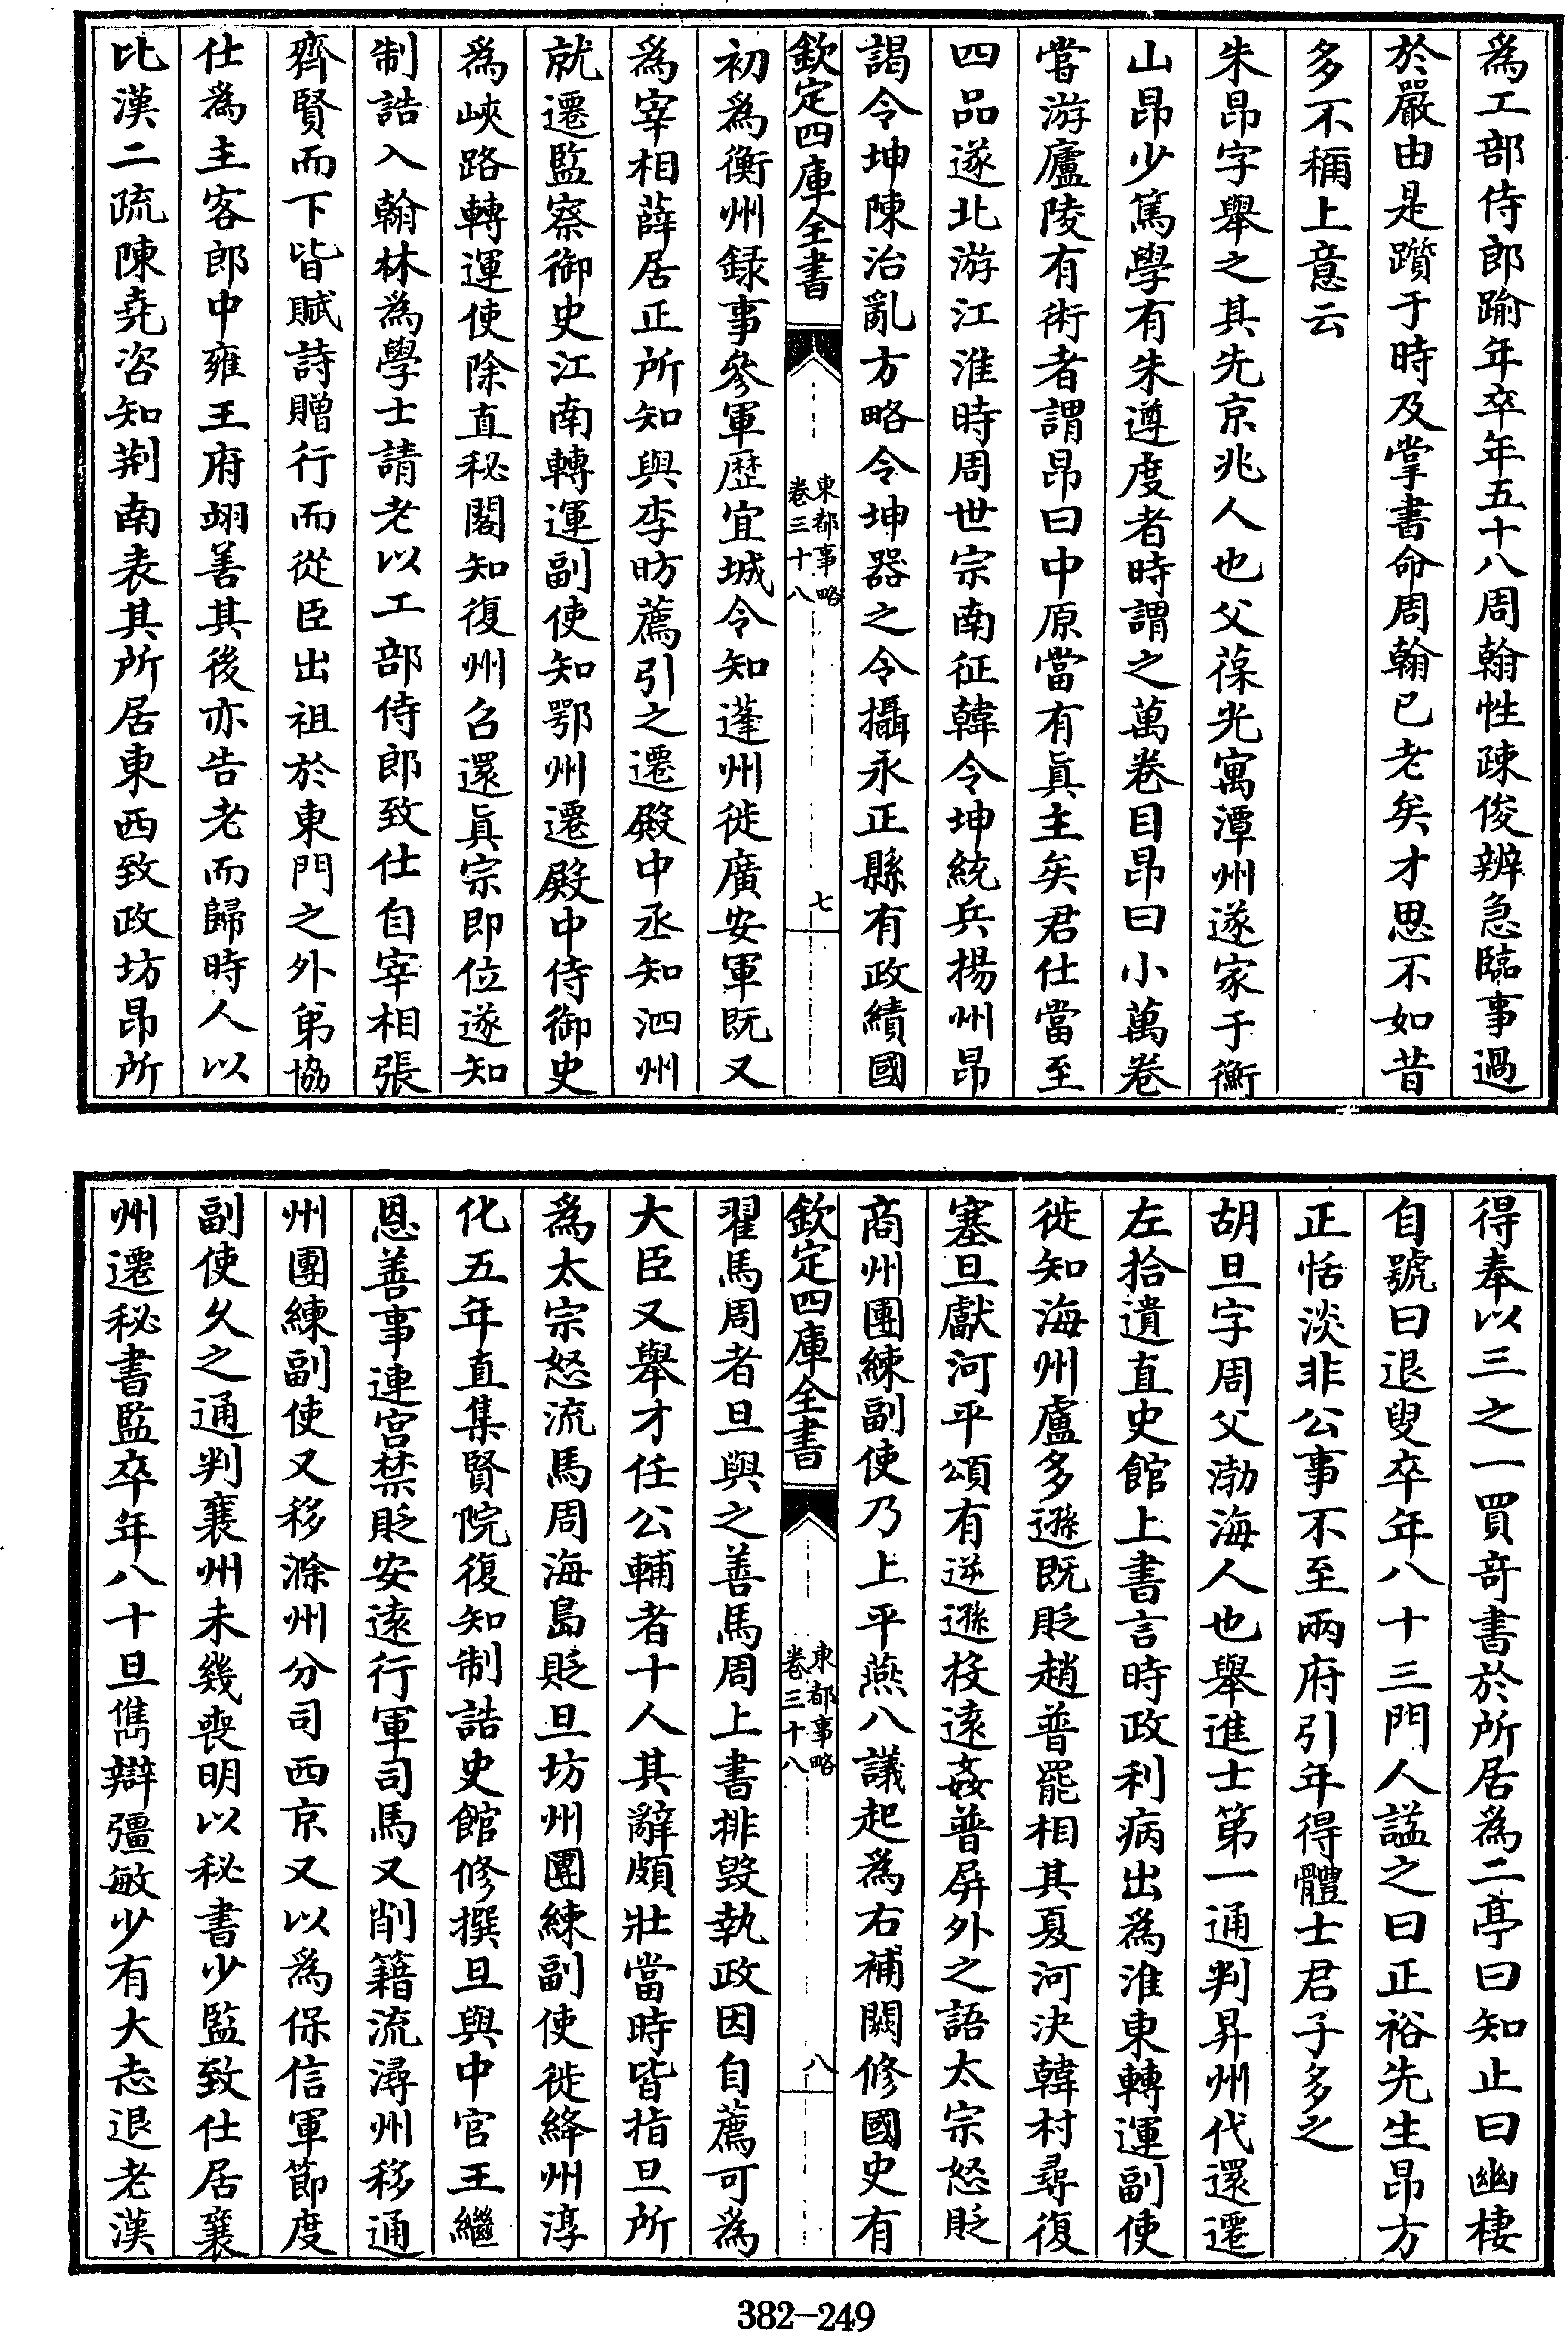 為工部侍郎踰年卒年五十八周翰性疎俊辨急臨事過
於嚴由是躓于時及掌書命周翰已老矣才思不如昔
多不稱上意云
朱昂字舉之其先京兆人也父葆光寓潭州遂家于衡
山昂少篤學有朱遵度者時謂之萬卷目昂曰小萬卷
嘗游廬陵有術者謂昂曰中原當有真主矣君仕當至
四品遂北游江淮時周世宗南征韓令坤統兵揚州昂
謁令坤陳治亂方略令坤器之令攝永正縣有政績國
欽定四庫全書
東都事略
卷三十八
七
初為衡州録事參軍歴宜城令知蓬州徙廣安軍既又
為宰相薛居正所知與李昉薦引之遷殿中丞知泗州
就遷監察御史江南轉運副使知鄂州遷殿中侍御史
為峽路轉運使除直秘閣知復州召還真宗即位遂知
制誥入翰林為學士請老以工部侍郎致仕自宰相張
齊賢而下皆賦詩贈行而從臣出祖於東門之外弟協
仕為主客郎中雍王府翊善其後亦告老而歸時人以
比漢二疏陳堯咨知荆南表其所居東西致政坊昂所
得奉以三之一買奇書於所居為二亭曰知止曰幽棲
自號曰退叟卒年八十三門人諡之曰正裕先生昂方
正恬淡非公事不至兩府引年得體士君子多之
胡旦字周父渤海人也舉進士第一通判昇州代還遷
左拾遺直史館上書言時政利病出為淮東轉運副使
徙知海州盧多遜既貶趙普罷相其夏河决韓村尋復
塞旦獻河平頌有逆遜投逺姦普屏外之語太宗怒貶
商州團練副使乃上平燕八議起為右補闕修國史有
欽定四庫全書
東都事略
卷三十八
八
翟馬周者旦與之善馬周上書排毁執政因自薦可為
大臣又舉才任公輔者十人其辭頗壯當時皆指旦所
為太宗怒流馬周海島貶旦坊州團練副使徙絳州淳
化五年直集賢院復知制誥史館修撰旦與中官王繼
恩善事連宫禁貶安逺行軍司馬又削籍流潯州移通
州團練副使又移滁州分司西京又以為保信軍節度
副使久之通判襄州未幾喪明以秘書少監致仕居襄
州遷秘書監卒年八十旦儁辯彊敏少有大志退老漢
382-249